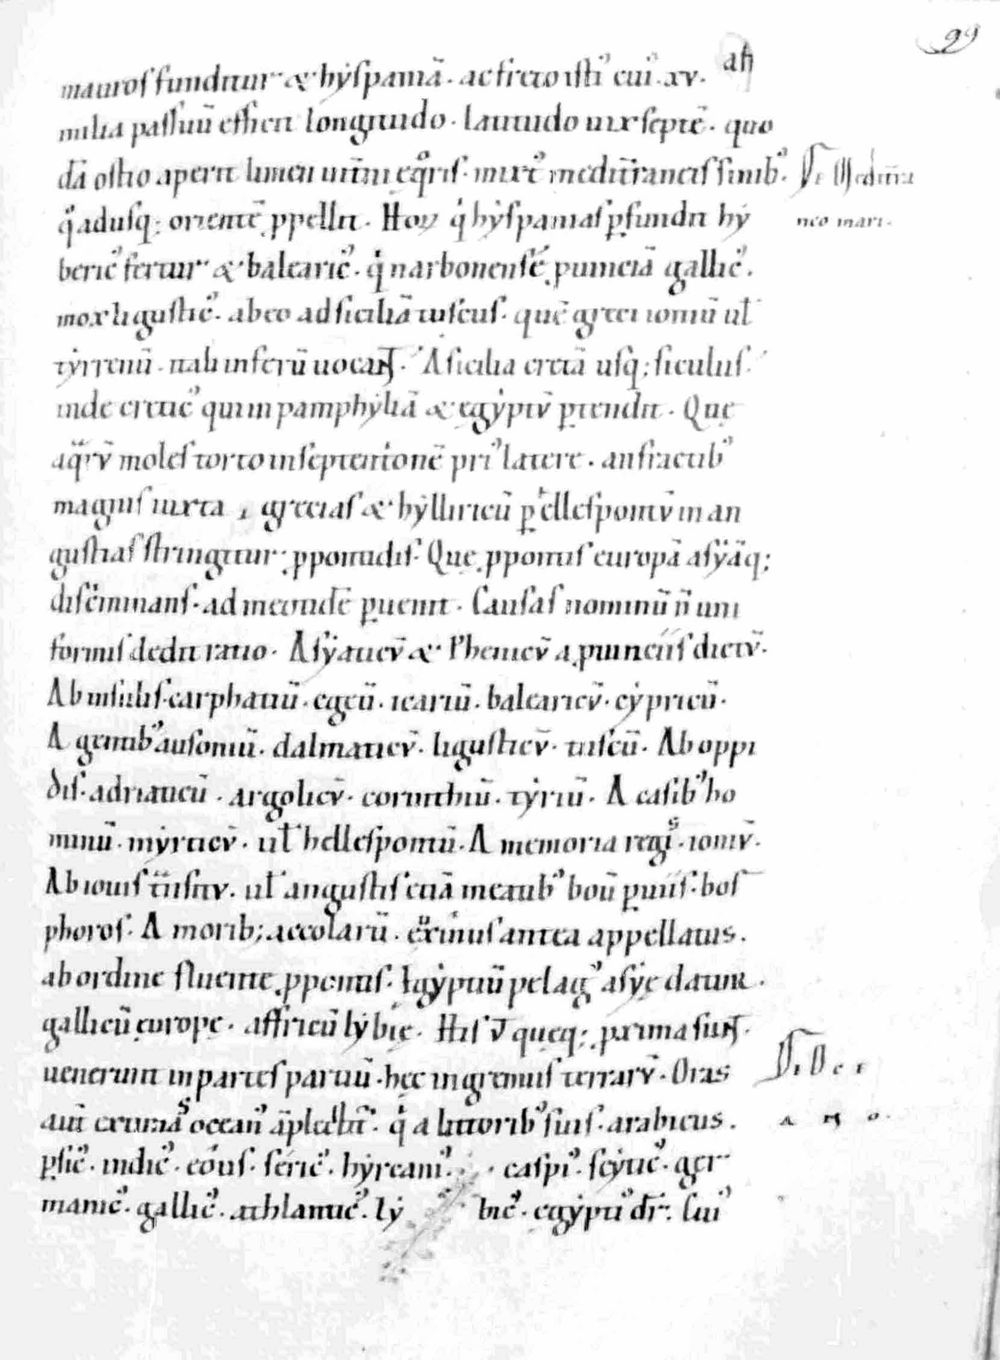 99
mauros funditur & hẏspaniā. ac freto isti᷒ cui᷒ .xv. aħ
milia passuū essient longitudo. latitudo uix septē. quo
dā ostio aperit limen intimi ęq̊ris. mixt᷒ meditr̄raneis sinib᷒.
q̊ adusq; orientē ꝓpellit. Hoꝝ q̇ hẏspanias ꝑfundit hẏ
beric᷒ fertur & balearic᷒. q̇ narbonensē ꝓuinciā gallic᷒.
mox ligustic᷒. abeo ad siciliā tuscus. quē greci ioniū ul̄
tẏrrenū. itali inferū uocaɴt. A sicilia cretā usq; siculus.
inde cretic᷒ qui in pamphẏliā & egẏptū ꝑtendit. Quę
aq̈rū moles torto in septentrionē pri᷒ latere. anfractib᷒
magnis iuxta grecias & hẏlliricū ꝑ ellespontū in an
gustias stringitur ꝓpontidis. Quę ꝓpontis europā asẏāq;
discriminans. ad meotidē ꝑuenit. Causas nominū n̄ uni
formis dedit ratio. Asẏaticū & Phenicū a ꝓuinciis dictū.
Ab insulis. carphatiū. egeū. icariū. balearicū. cẏpricū.
A gentib᷒ ausoniū. dalmaticū. ligusticū. tuscū. Ab oppi
dis. adriaticū. argolicū. corinthiū. tẏriū. A casib᷒ ho
minū. mẏrticū. ul̄ hellespontū. A memoria regis. ioniū.
Ab iouis tr̄nsitu. ul̄ angustis etiā meatib᷒ boū ꝑuiis. bos
phoros. A morib; accolarū. ęxinus antea appellatus.
ab ordine fluente ꝓpontis. Egẏptiū pelag᷒ asẏę datur.
gallicū europę. affricū lẏbię. His ut̄ quęq; ꝓxima suɴt.
uenerunt in partes partiū. hęc in gremiis terrarū. Oras
aut̄ extimas ocean᷒ āplectit᷒. q̇ a littorib᷒ suis. arabicus.
ꝑsic᷒. indic᷒. eous. seric᷒. hẏrcani᷒. caspi᷒. scẏtic᷒. ger
manic᷒. gallic᷒. athlantic᷒. lẏ bic᷒. egẏpti᷒ dr̄. Cui᷒
De Meditr̄ra
neo mari.
De Oce
a n o.